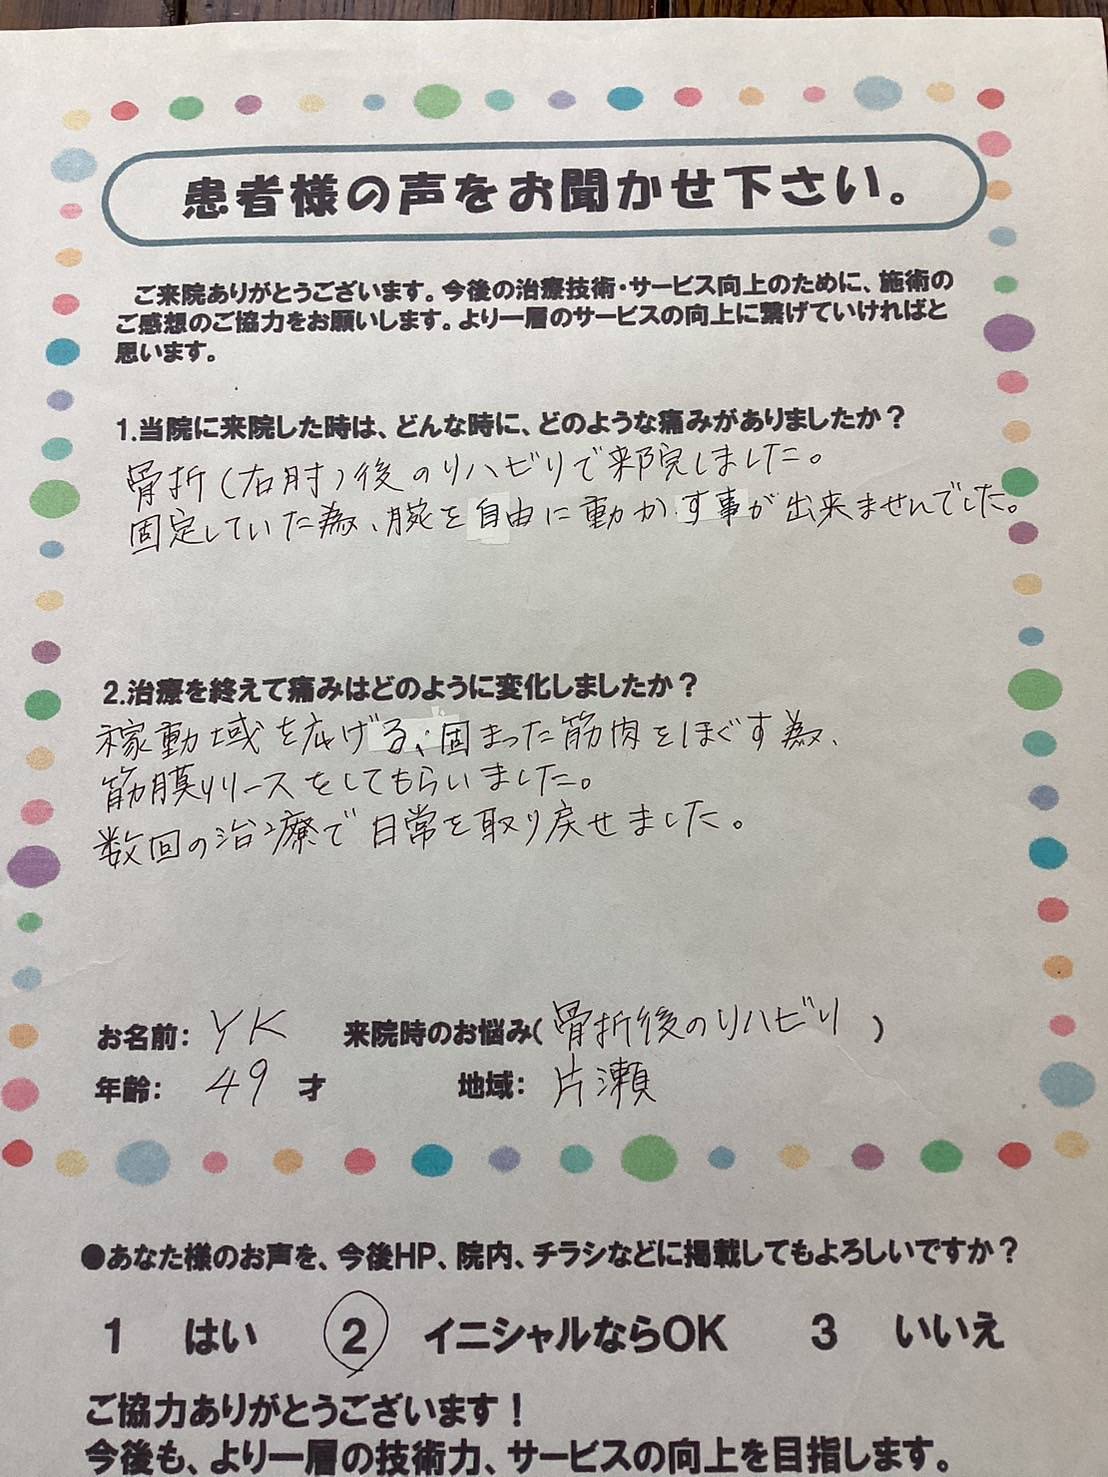 患者様の声をお聞かせ下さい。
ご来院ありがとうございます。今後の治療技術・サービス向上のために、施術の
ご感想のご協力をお願いします。より一層のサービスの向上に繋げていければと
思います。
1.当院に来院した時は、どんな時に、どのような痛みがありましたか？
骨折(右肘)後のリハビリで来院しました。
固定していた為、腕を自由に動かす事が出来ませんでした。
2.治療を終えて痛みはどのように変化しましたか？
稼動域を広げる、固まった筋肉をほぐす為、
筋膜リリースをしてもらいました。
数回の治療で日常を取り戻せました。
お名前: YK 来院時のお悩み(骨折後のリハビリ)
年齢: 49 才 地域: 片瀬
●あなた様のお声を、今後HP、院内、チラシなどに掲載してもよろしいですか？
1 はい 2 イニシャルならOK 3 いいえ
ご協力ありがとうございます！
今後も、より一層の技術力、サービスの向上を目指します。